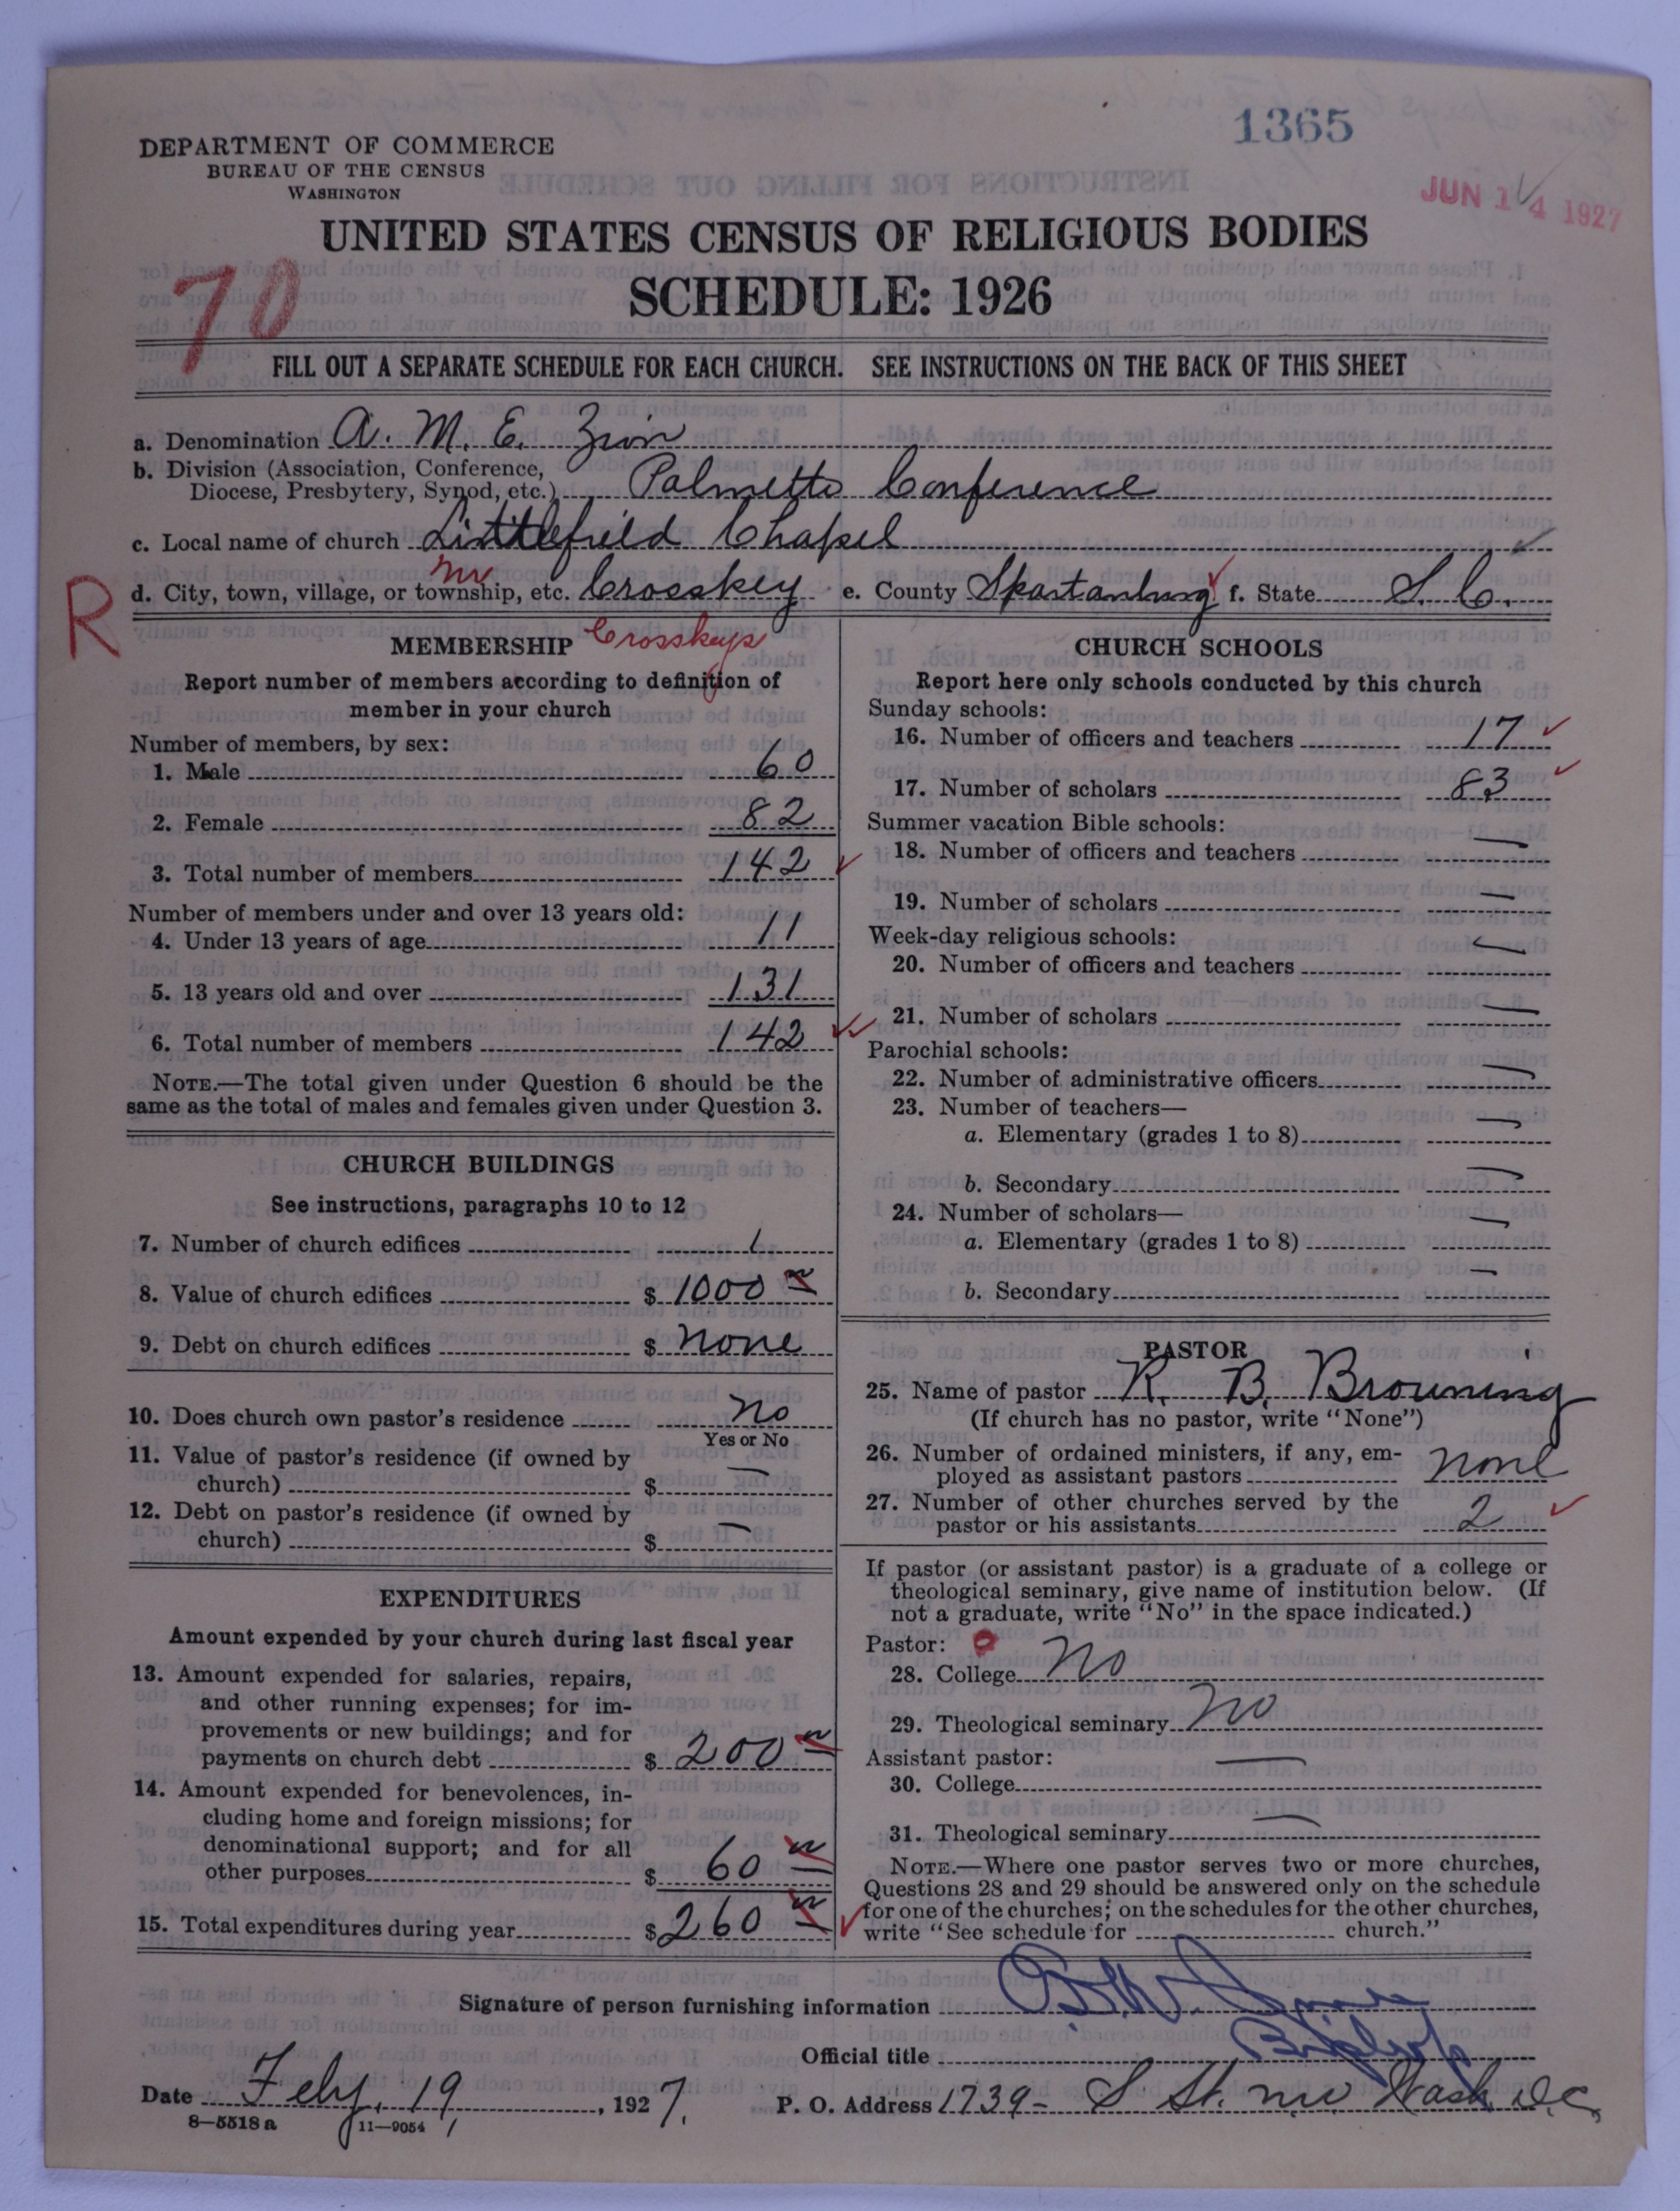 1365
DEPARTMENT OF COMMERCE
BUREAU OF THE CENSUS
WASHINGTON
JUN 14 1927
UNITED STATES CENSUS OF RELIGIOUS BODIES
SCHEDULE: 1926
70
FILL OUT A SEPARATE SCHEDULE FOR EACH CHURCH. SEE INSTRUCTIONS ON THE BACK OF THIS SHEET
a. Denomination A. M. E. Zion
b. Division (Association, Conference,
Diocese, Presbytery, Synod, etc.) Palmetto Conference
c. Local name of church Littlefield Chapel
nr
R
d. City, town, village, or township, etc. Crosskey e. County Spartanburg f. State S. C.
Crosskeys
MEMBERSHIP
Report number of members according to definition of
member in your church
Number of members, by sex:
1. Male 60
2. Female 82
3. Total number of members 142
Number of members under and over 13 years old:
4. Under 13 years of age 11
5. 13 years old and over 131
6. Total number of members 142
NOTE.—The total given under Question 6 should be the
same as the total of males and females given under Question 3.
CHURCH BUILDINGS
See instructions, paragraphs 10 to 12
7. Number of church edifices 1
8. Value of church edifices $ 1000
9. Debt on church edifices $ None
10. Does church own pastor's residence No
Yes or No
11. Value of pastor's residence (if owned by
church) $ —
12. Debt on pastor's residence (if owned by
church) $ —
EXPENDITURES
Amount expended by your church during last fiscal year
13. Amount expended for salaries, repairs,
and other running expenses; for im-
provements or new buildings; and for
payments on church debt $ 200
14. Amount expended for benevolences, in-
cluding home and foreign missions; for
denominational support; and for all
other purposes $ 60
15. Total expenditures during year $ 260
CHURCH SCHOOLS
Report here only schools conducted by this church
Sunday schools:
16. Number of officers and teachers 17
17. Number of scholars 83
Summer vacation Bible schools:
18. Number of officers and teachers —
19. Number of scholars —
Week-day religious schools:
20. Number of officers and teachers —
21. Number of scholars —
Parochial schools:
22. Number of administrative officers —
23. Number of teachers—
a. Elementary (grades 1 to 8) —
b. Secondary —
24. Number of scholars—
a. Elementary (grades 1 to 8) —
b. Secondary —
PASTOR
25. Name of pastor R. B. Browning
(If church has no pastor, write "None")
26. Number of ordained ministers, if any, em-
ployed as assistant pastors None
27. Number of other churches served by the
pastor or his assistants 2
If pastor (or assistant pastor) is a graduate of a college or
theological seminary, give name of institution below. (If
not a graduate, write "No" in the space indicated.)
Pastor: 0
28. College No
29. Theological seminary No
Assistant pastor:
30. College —
31. Theological seminary —
NOTE.—Where one pastor serves two or more churches,
Questions 28 and 29 should be answered only on the schedule
for one of the churches; on the schedules for the other churches,
write "See schedule for church."
Signature of person furnishing information
Official title Bishop
Date Feby, 19, 1927. P. O. Address 1739- S St. nw Wash D.C.
8—5518 a 11—9054